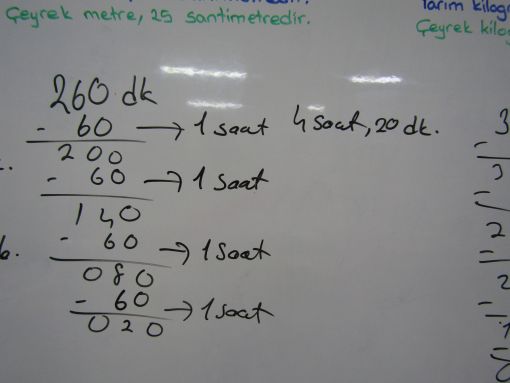 Çeyrek metre, 25 santimetredir.
Yarım kilog
Çeyrek kilog
260 dk
- 60 → 1 saat 4 saat, 20 dk.
200
- 60 → 1 saat
140
- 60 → 1 saat
080
- 60 → 1 saat
020